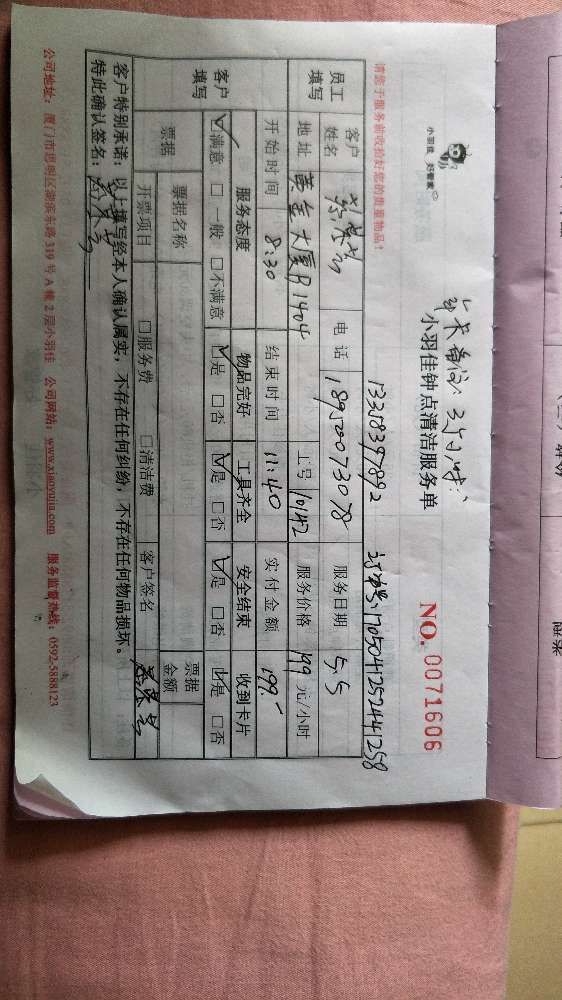 小羽佳 好管家
小羽佳钟点清洁服务单
NO. 0071606
请您于服务前收拾好您的贵重物品！
13308397892 订单号：1705041252441258
员工填写 客户姓名 电话 18950073078 服务日期 5.5
地址 黄金大厦B1404 工号 10142 服务价格 199 元/小时
开始时间 8:30 结束时间 11:40 实付金额 199
客户填写 服务态度 物品完好 工具齐全 安全结束 收到卡片
☑满意 □一般 □不满意 ☑是 □否 ☑是 □否 ☑是 □否 ☑是 □否
票据 票据名称 票据金额
开票项目 □服务费 □清洁费 客户签名
客户特别承诺：以上填写经本人确认属实，不存在任何纠纷，不存在任何物品损坏。
特此确认签名：
公司地址：厦门市思明区湖滨东路 319 号 A 幢 2 层小羽佳 公司网站：www.xiaoyujia.com 服务监督热线：0592-5888123